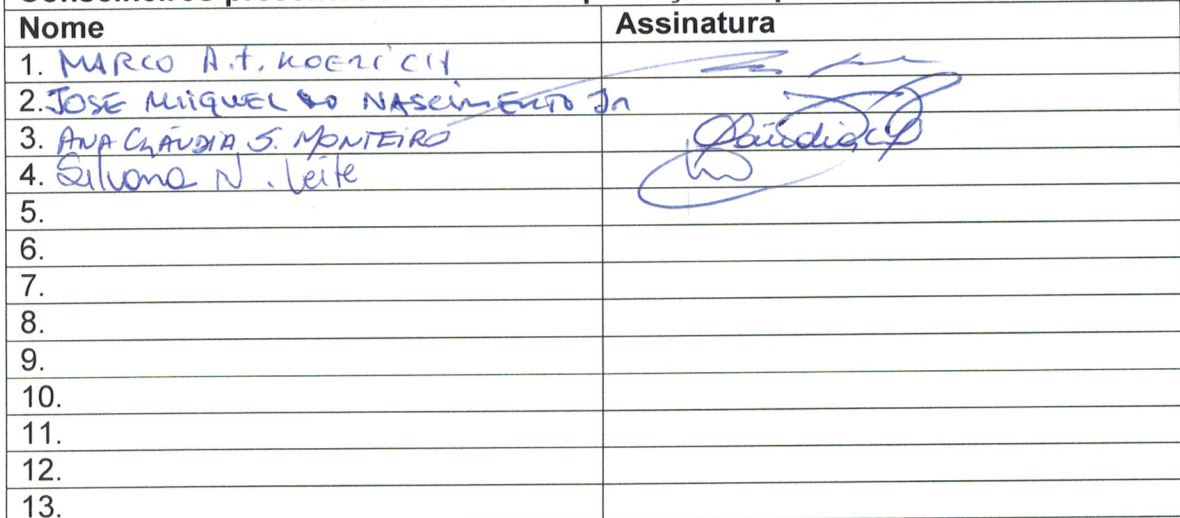 Nome Assinatura
1. MARCO A.T. KOERICH
2. JOSE MIIGUEL DO NASCIMENTO Jn
3. ANA CLÁUDIA S. MONTEIRO Claudia
4. Silvana N. Leite
5.
6.
7.
8.
9.
10.
11.
12.
13.